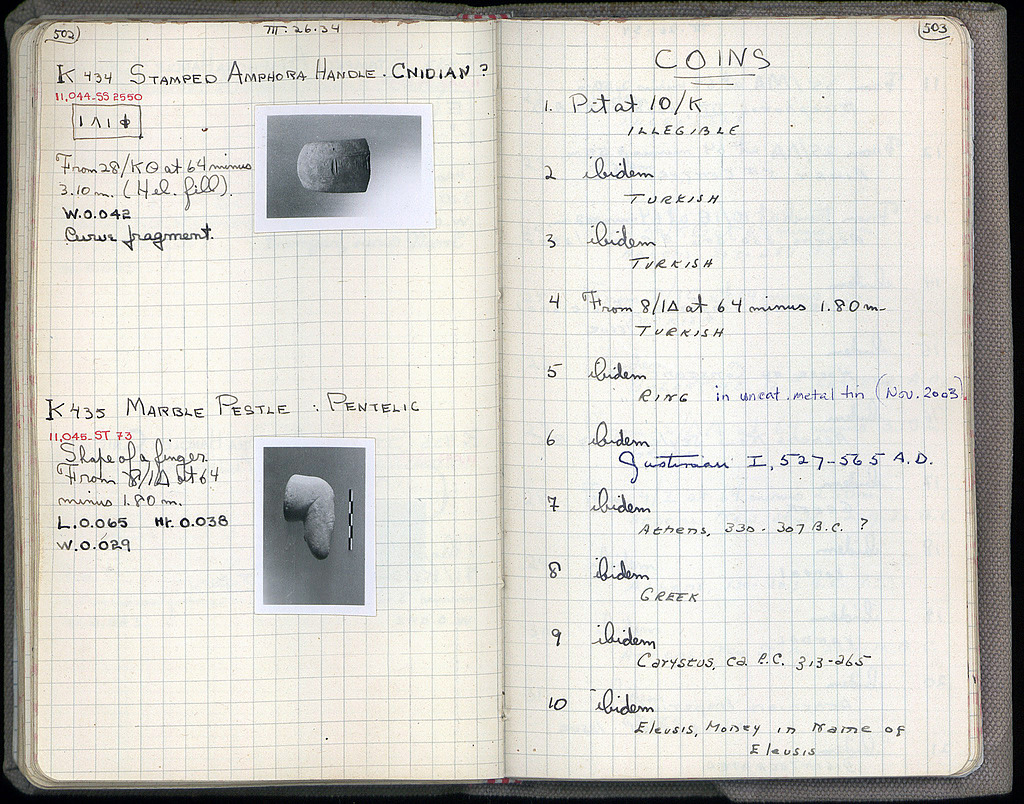 502
III. 26.34
K 434 STAMPED AMPHORA HANDLE. CNIDIAN ?
11,044-SS 2550
From 28/ΚΘ at 64 minus
3.10 m. (Hel. fill).
W. 0.042
Curve fragment.
K 435 MARBLE PESTLE : PENTELIC
11,045-ST 73
Shape of a finger.
From 8/ΙΔ at 64
minus 1.80 m.
L. 0.065 Ht. 0.038
W. 0.029
503
COINS
1. Pit at 10/K
ILLEGIBLE
2 ibidem
TURKISH
3 ibidem
TURKISH
4 From 8/ΙΔ at 64 minus 1.80 m.
TURKISH
5 ibidem
RING in uncat. metal tin (Nov. 2003).
6 ibidem
Justinian I, 527-565 A.D.
7 ibidem
Athens, 330-307 B.C. ?
8 ibidem
GREEK
9 ibidem
Carystus, ca. B.C. 313-265
10 ibidem
Eleusis, Money in Name of
Eleusis